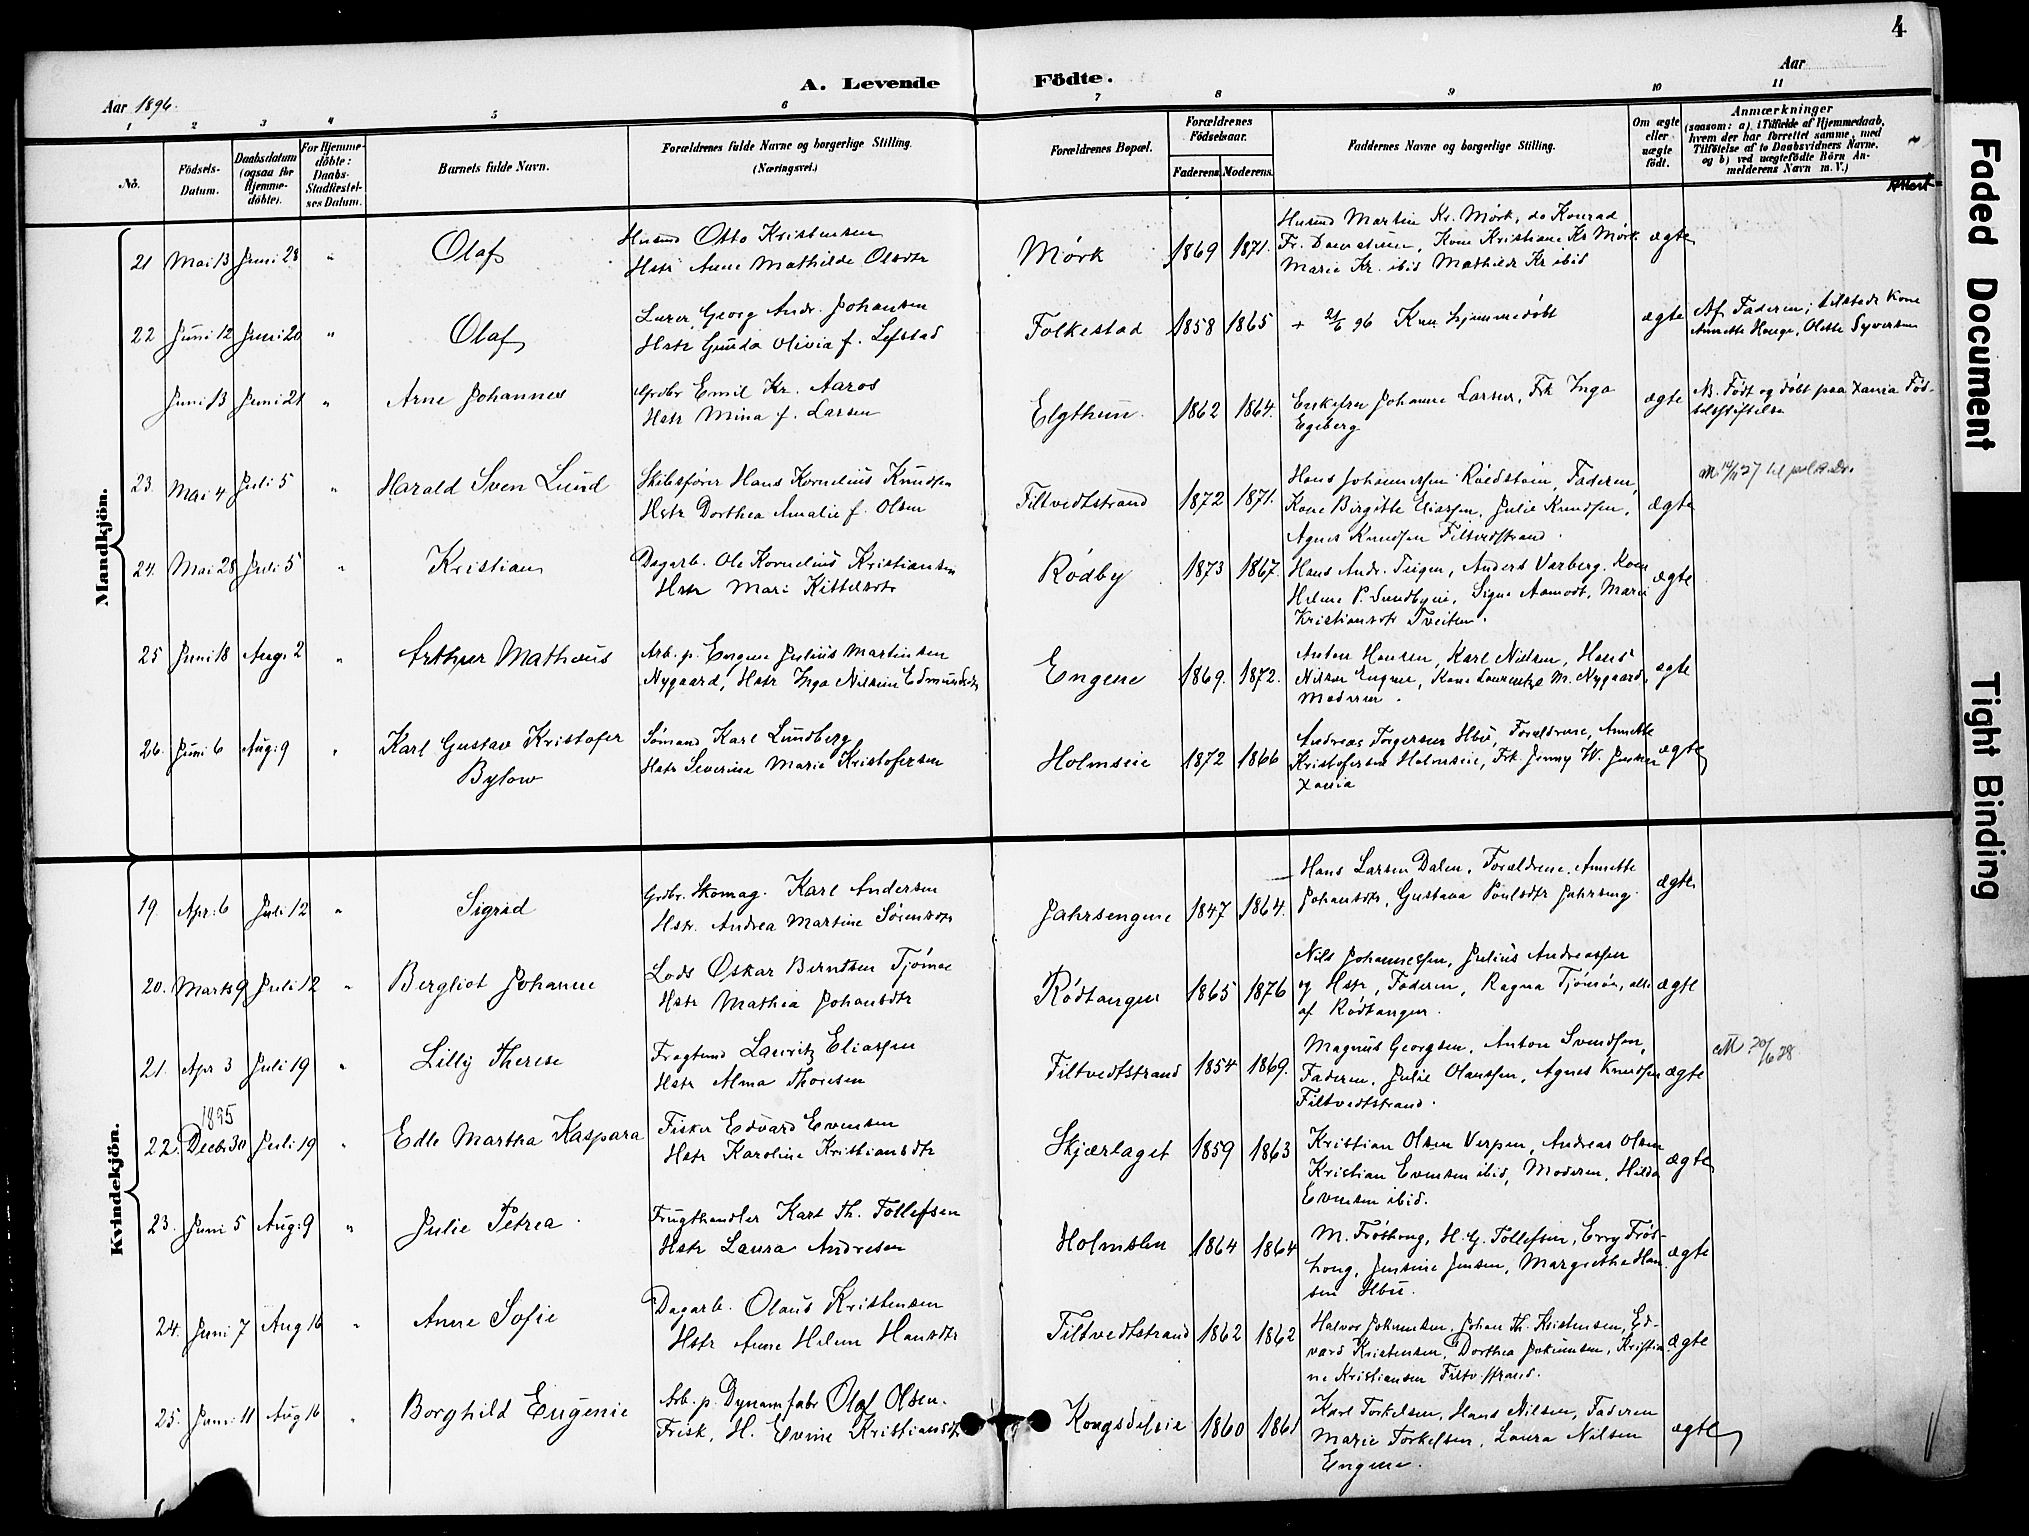 4
A. Levende Födte.
Aar 1896.
Aar
1 2 3 4 5 6 7 8 9 10 11
No.
Födsels-Datum.
Daabsdatum (ogsaa for Hjemme-döbte).
For Hjemme-döbte: Daabs-Stadfæstel-ses Datum.
Barnets fulde Navn.
Forældrenes fulde Navne og borgerlige Stilling. (Næringsvei.)
Forældrenes Bopæl.
Forældrenes Födselsaar.
Faderens. Moderens.
Faddernes Navne og borgerlige Stilling.
Om ægte eller uægte födt.
Anmærkninger
(saasom: a) i Tilfælde af Hjemmedaab, hvem der har forrettet samme, med Tilföielse af to Daabsvidners Navne, og b) ved uægtefödte Börn An-melderens Navn m. V.)
Mandkjön.
21 Mai 13 Juni 28 " Olaf
Husmd Otto Kristensen
Hstr Anne Mathilde Olsdtr
Mørk 1869 1871.
Husmd Martin Kr. Mørk, do Konrad
Fr. Kone Kristiane Kr Mørk
Marie Kr. ibid Mathilde Kr ibid
ægte
22 Juni 12 Juni 20 " Olaf
Georg Andr. Johansen
Hstr Gunda Olivia f. Lefstad
Folkestad 1858 1865
+ 21/6 96 Kun hjemmedøbt
ægte
Af Faderen; tilstede Kone
Annette Hauge, Olette Syversen
Juni 13 Juni 21 " Arne Johannes
Grdbr Emil Kr. Aaros
Hstr Mina f. Larsen
Elgthun. 1862 1864.
Enkefru Johanne Larsen, Frk Inga
Egeberg
ægte
NB. Født og døbt paa Xania Fød-
selsstiftelse
23. Mai 4 Juli 5 " Harald Sven Lund
Skibsfører Hans Kornelius Knudsen
Hstr Dorthea Amalie f. Olsen
Filtvedtstrand 1872 1871.
Hans Johannessen Faderen,
Kone Birgitte Eliassen, Julie Knudsen,
Agnes Knudsen Filtvedtstrand.
ægte
24. Mai 28 Juli 5 " Kristian
Dagarb. Ole Kornelius Kristiansen
Hstr Mari Kittelsdtr
Rødby 1873 1867.
Hans Andr. Teigen, Anders Varberg. Kone
Helene P. Sundbyeie, Signe Aamodt, Marie
Kristiansdtr Tveiten.
ægte
25 Juni 18 Aug. 2 " Arthur Mathæus
Arb. p. Engene Julius Martinsen
Nygaard, Hstr Inga Nilsine Edmundsdtr
Engene 1869. 1872.
Anton Hansen, Karl Nielsen, Hans
Nilsen Engene, Kone Laurentze M. Nygaard,
Moderen.
ægte
26. Juni 6 Aug: 9 " Karl Gustav Kristofer
Bylow
Sømand Karl Lundberg
Hstr Severine Marie Kristofersen
Holmseie 1872 1866
Andreas Torgersen Hbu, Forældrene, Annette
Kristofersen Holmseie, Frk Jenny W. Jensen
Xania
ægte
Kvindekjön.
19. Apr: 6 Juli 12 " Sigrid
Grdbr. Skomag. Karl Andersen
Hstr. Andrea Martine Sørensdtr
Jahrsengene 1847 1864.
Hans Larsen Dalen, Forældrene, Annette
Johansdtr, Gustava Poulsdtr Jahrseng.
ægte
20. Marts 9 Juli 12 " Bergliot Johanne
Lods Oskar Berntsen Tjømøe
Hstr Mathea Johansdtr
Rødtangen 1865 1876
Nils Johannessen, Julius Andreassen
og Hstr, Faderen, Ragna Tjømøe, alle
af Rødtangen.
ægte
21. Apr 3 Juli 19 " Lilly Therese
Fragtmd Lauritz Eliassen
Hstr Alma Thoresen
Filtvedtstrand 1854 1869.
Magnus Georgsen, Anton Svendsen,
Faderen, Julie Olaussen, Agnes Knudsen
Filtvedtstrand.
ægte
M 20/6 28
22. 1895 Decbr 30 Juli 19 " Edle Martha Kaspara
Fisker Edvard Evensen
Hstr Karoline Kristiansdtr
Skjærlaget 1859 1863
Kristian Olsen Verpen, Andreas Olsen
Kristian Evensen ibid, Moderen, Hilda
Evensen ibid.
ægte
23. Juni 5 Aug: 9 " Julie Petrea
Frugthandler Karl Th. Tollefsen
Hstr Laura Andresen
Holmslen 1864 1864
M. Frøshoug, H. G. Tollefsen, Erry Frøs-
houg, Jensine Jensen, Margrethe Han-
sen Hbu.
ægte
24. Juni 7 Aug 16 " Anne Sofie
Dagarb. Olaus Kristensen
Hstr Anne Helene Hansdtr
Filtvedtstrand 1862 1862
Halvor Jokumsen, Johan Th. Kristensen, Ed-
vard Kristensen, Dorthea Jokumsen, Kristia-
ne Kristiansen Filtvstrand.
ægte
25. Juni 11 Aug 16 " Borghild Eugenie
Arb. p. Dynamfabr Olaf Olsen.
Frisk, H. Evine Kristiansdtr
Kongsdeleie 1860 1861
Karl Torkelsen, Hans Nilsen, Faderen
Marie Torkelsen, Laura Nilsen
Engene.
ægte
Faded Document
Tight Binding